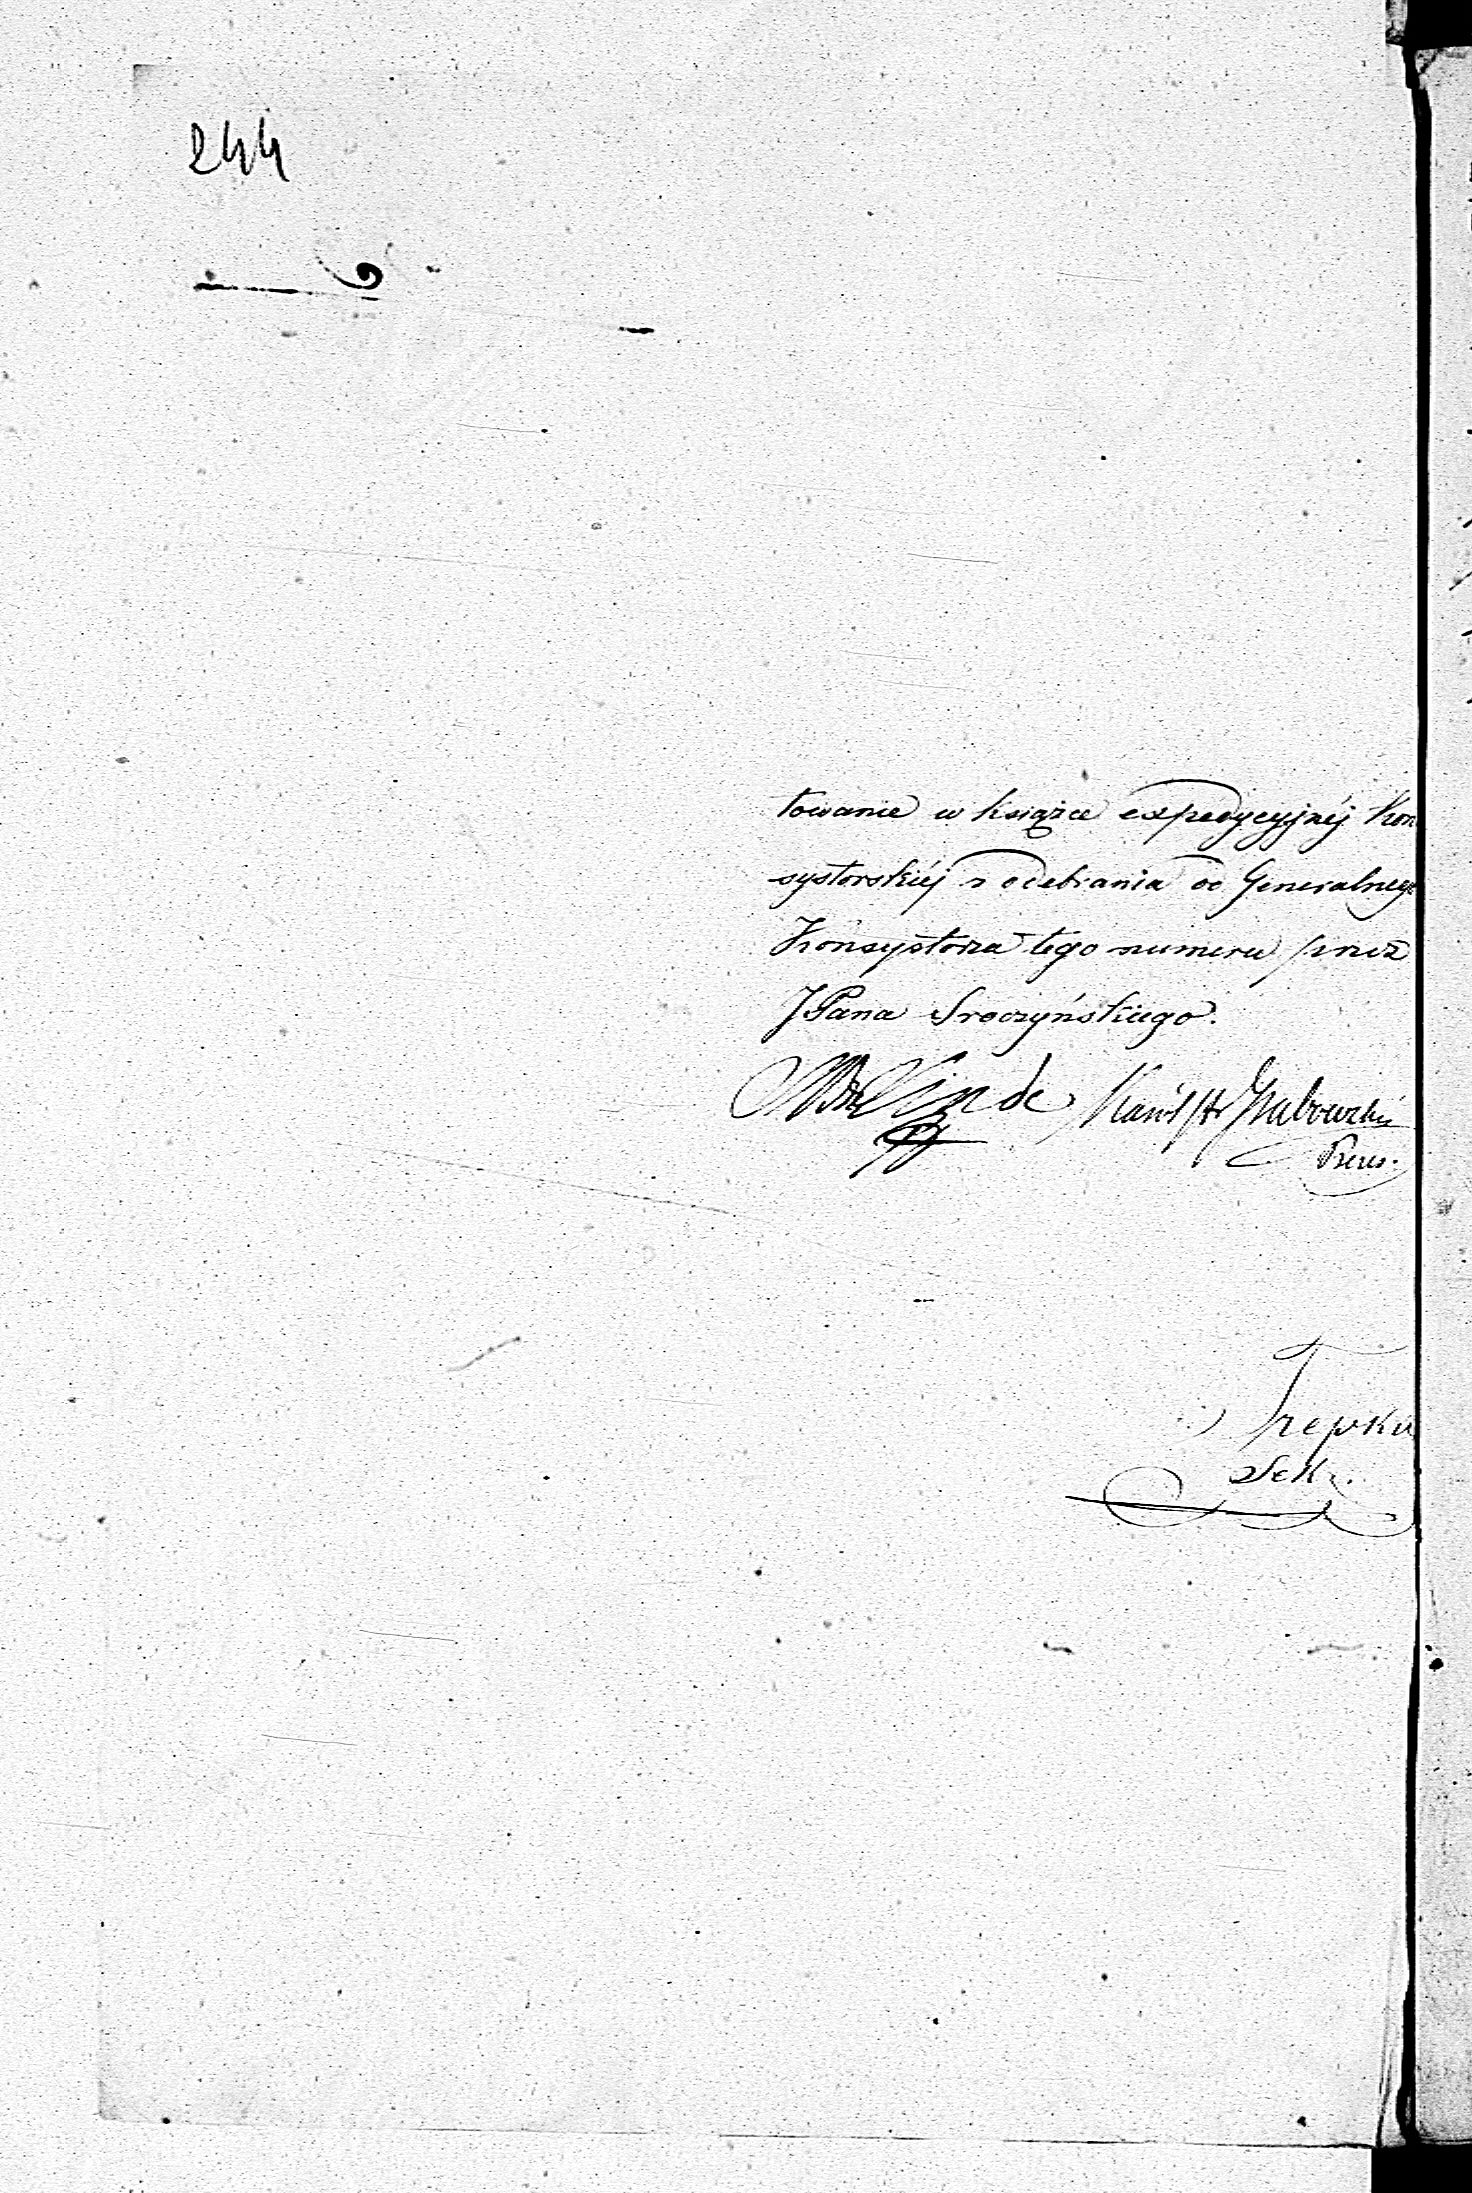 244
towanie w książce expedycyjnéj Kon
systorskiéj z odebrania od Generalnego
Konsystorza tego numeru przez
JPana Sroczyńskiego.
Linde Karol Hr Grabowski
Prezes.
Trepka
Sekr.